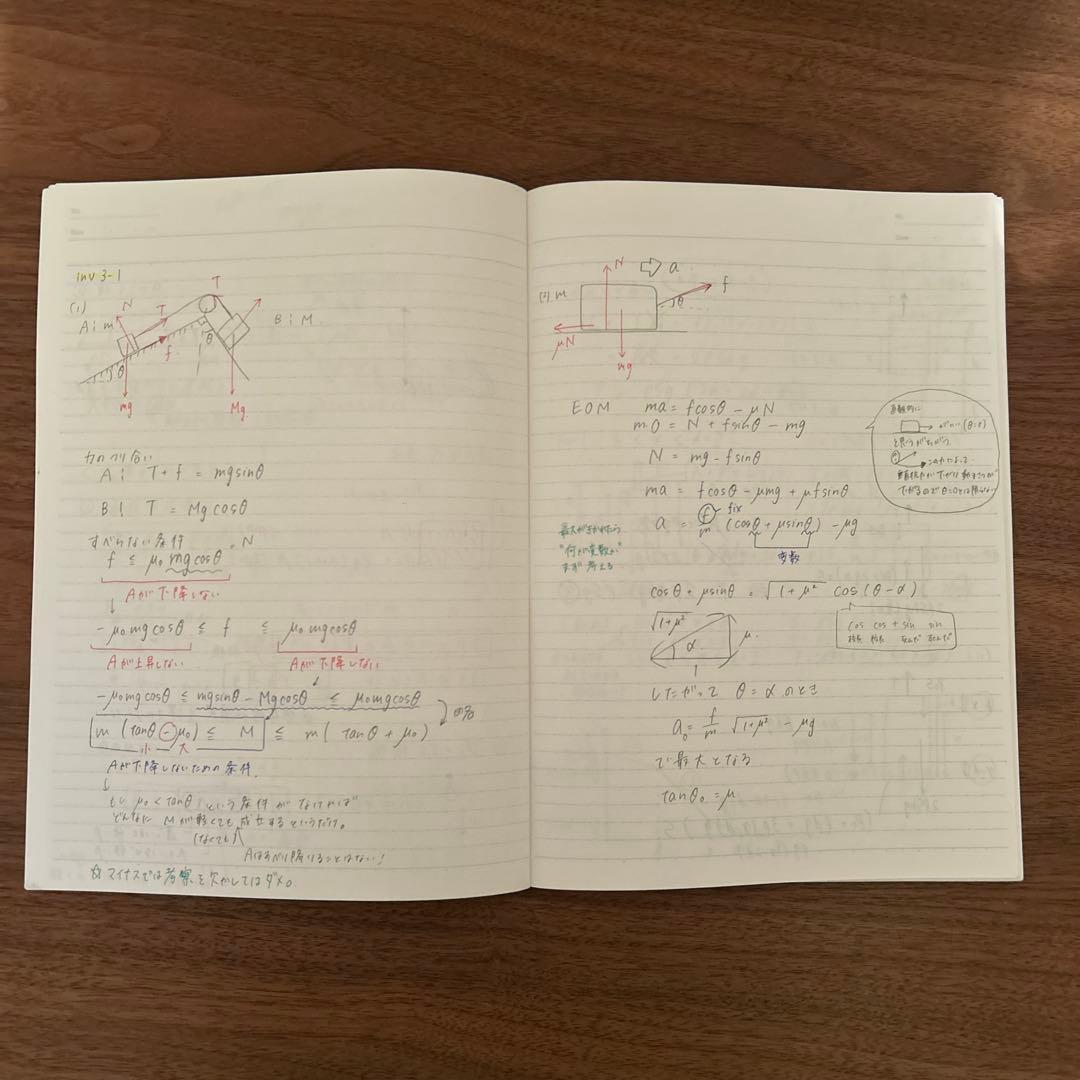 inv 3-1
(1)
N
T
T
A : m
B : M
f
θ
θ
mg
Mg
力のつり合い
A : T + f = mgsinθ
B : T = Mgcosθ
すべらない条件
N
f ≦ μ₀ mgcosθ
Aが下降しない
-μ₀mgcosθ ≦ f ≦ μ₀mgcosθ
Aが上昇しない
Aが下降しない
-μ₀mgcosθ ≦ mgsinθ - Mgcosθ ≦ μ₀mgcosθ
m (tanθ - μ₀) ≦ M ≦ m (tanθ + μ₀)
小 大
Aが下降しないための条件
もし μ₀ < tanθ という条件がなければ
どんなに Mが軽くても成立するというだけ。
(なくても)
Aはすべり降りることはない!
☆マイナスでは考察を欠かしてはダメ。
(2) m
N
a
f
θ
μN
mg
EOM
ma = fcosθ - μN
m・0 = N + fsinθ - mg
N = mg - fsinθ
ma = fcosθ - μmg + μfsinθ
fix
a = f/m (cosθ + μsinθ) - μg
変数
最大がきかれたら
"何が変数か"
まず考える
直観的に
(θ=0)
と思うがちがう。
cosθ + μsinθ = √1+μ² cos(θ-α)
cos cos + sin sin
√1+μ²
μ
α
1
したがって θ = α のとき
a₀ = f/m √1+μ² - μg
で最大となる
tanθ₀ = μ